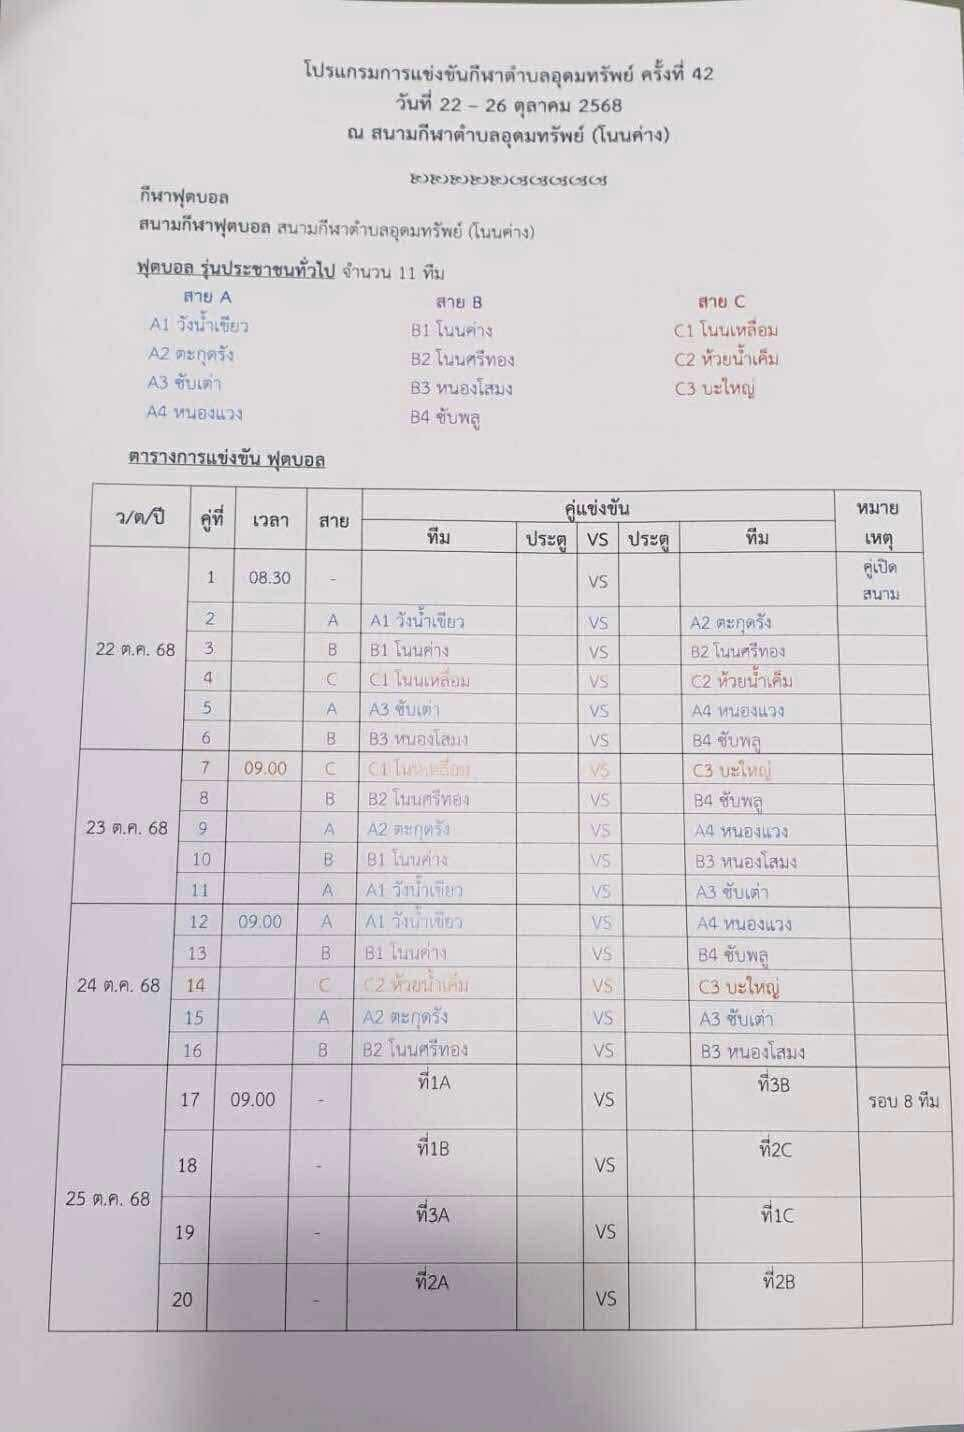 โปรแกรมการแข่งขันกีฬาตำบลอุดมทรัพย์ ครั้งที่ 42
วันที่ 22 – 26 ตุลาคม 2568
ณ สนามกีฬาตำบลอุดมทรัพย์ (โนนค่าง)
กีฬาฟุตบอล
สนามกีฬาฟุตบอล สนามกีฬาตำบลอุดมทรัพย์ (โนนค่าง)
ฟุตบอล รุ่นประชาชนทั่วไป จำนวน 11 ทีม
สาย A สาย B สาย C
A1 วังน้ำเขียว B1 โนนค่าง C1 โนนเหลื่อม
A2 ตะกุดรัง B2 โนนศรีทอง C2 ห้วยน้ำเค็ม
A3 ซับเต่า B3 หนองโสมง C3 บะใหญ่
A4 หนองแวง B4 ซับพลู
ตารางการแข่งขัน ฟุตบอล
ว/ด/ปี คู่ที่ เวลา สาย คู่แข่งขัน หมายเหตุ
ทีม ประตู VS ประตู ทีม
22 ต.ค. 68
1 08.30 - VS คู่เปิดสนาม
2 A A1 วังน้ำเขียว VS A2 ตะกุดรัง
3 B B1 โนนค่าง VS B2 โนนศรีทอง
4 C C1 โนนเหลื่อม VS C2 ห้วยน้ำเค็ม
5 A A3 ซับเต่า VS A4 หนองแวง
6 B B3 หนองโสมง VS B4 ซับพลู
23 ต.ค. 68
7 09.00 C C1 โนนเหลื่อม VS C3 บะใหญ่
8 B B2 โนนศรีทอง VS B4 ซับพลู
9 A A2 ตะกุดรัง VS A4 หนองแวง
10 B B1 โนนค่าง VS B3 หนองโสมง
11 A A1 วังน้ำเขียว VS A3 ซับเต่า
24 ต.ค. 68
12 09.00 A A1 วังน้ำเขียว VS A4 หนองแวง
13 B B1 โนนค่าง VS B4 ซับพลู
14 C C2 ห้วยน้ำเค็ม VS C3 บะใหญ่
15 A A2 ตะกุดรัง VS A3 ซับเต่า
16 B B2 โนนศรีทอง VS B3 หนองโสมง
25 ต.ค. 68
17 09.00 - ที่1A VS ที่3B รอบ 8 ทีม
18 - ที่1B VS ที่2C
19 - ที่3A VS ที่1C
20 - ที่2A VS ที่2B